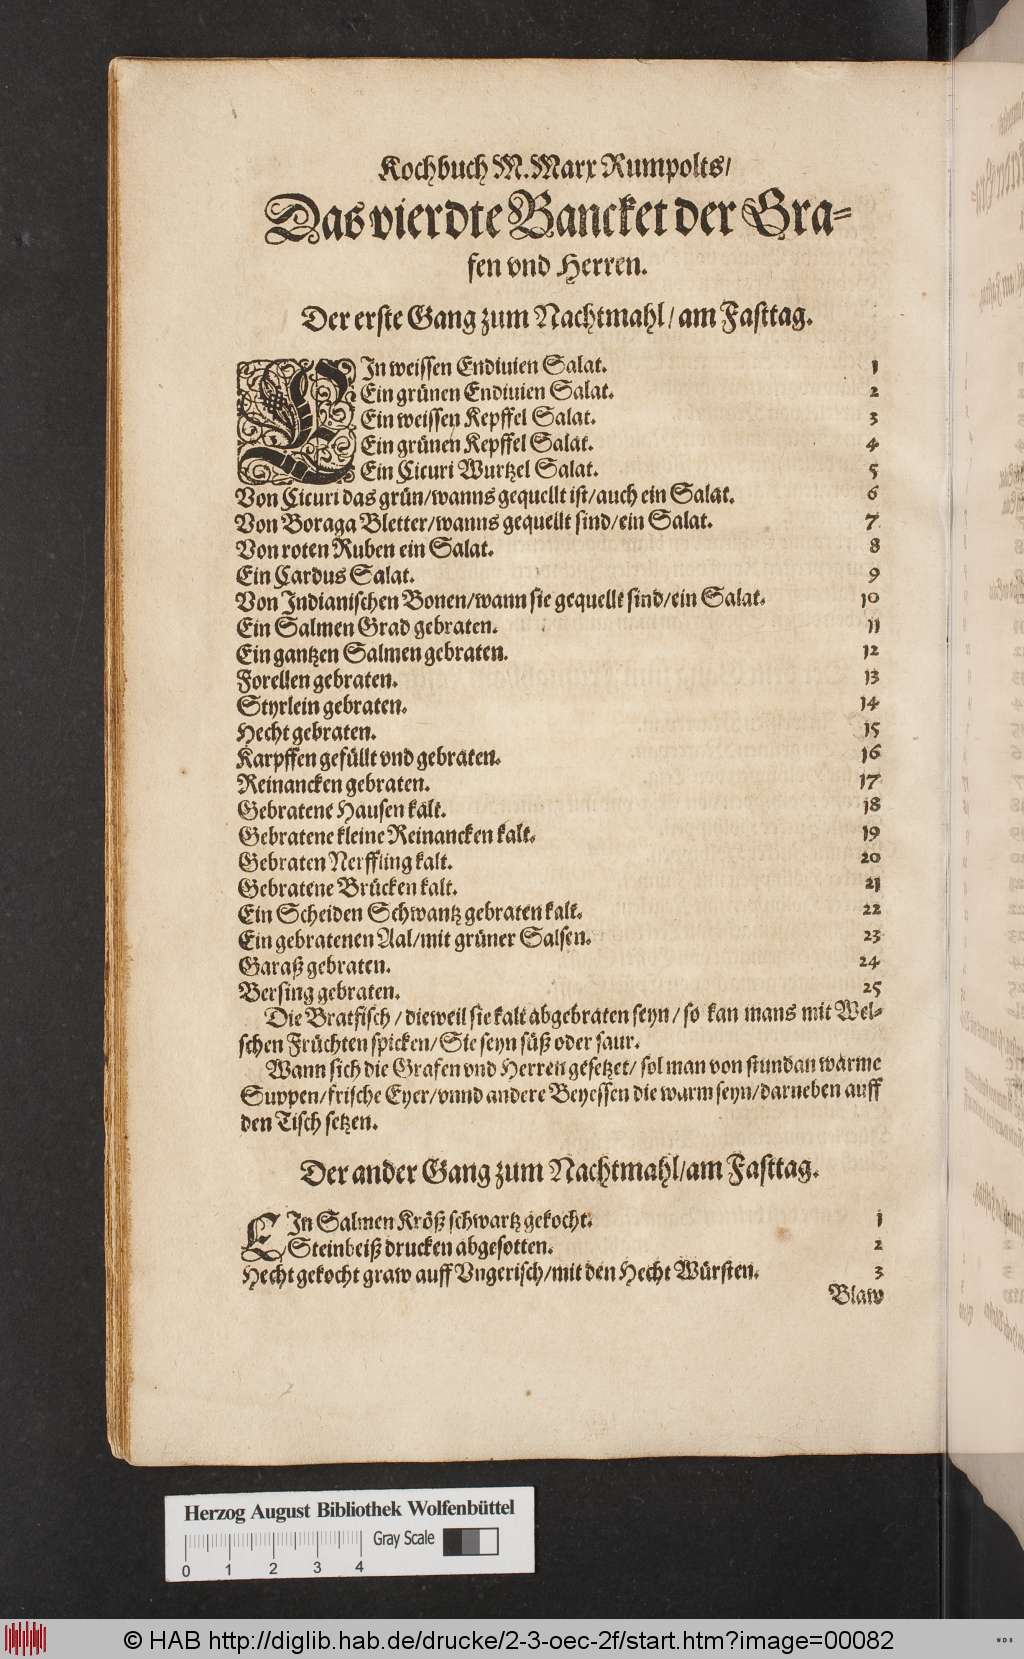 Kochbuch M. Marx Rumpolts/
Das vierdte Bancket der Gra=
fen vnd Herren.
Der erste Gang zum Nachtmahl/ am Fasttag.
EIn weissen Endiuien Salat. 1
Ein grünen Endiuien Salat. 2
Ein weissen Kepffel Salat. 3
Ein grünen Kepffel Salat. 4
Ein Cicuri Wurtzel Salat. 5
Von Cicuri das grün/wanns gequellt ist/auch ein Salat. 6
Von Boraga Bletter/wanns gequellt sind/ein Salat. 7
Von roten Ruben ein Salat. 8
Ein Cardus Salat. 9
Von Indianischen Bonen/wann sie gequellt sind/ein Salat. 10
Ein Salmen Grad gebraten. 11
Ein gantzen Salmen gebraten. 12
Forellen gebraten. 13
Styrlein gebraten. 14
Hecht gebraten. 15
Karpffen gefüllt vnd gebraten. 16
Reinancken gebraten. 17
Gebratene Hausen kalt. 18
Gebratene kleine Reinancken kalt. 19
Gebraten Nerffling kalt. 20
Gebratene Brücken kalt. 21
Ein Scheiden Schwantz gebraten kalt. 22
Ein gebratenen Aal/mit grüner Salsen. 23
Garaß gebraten. 24
Bersing gebraten. 25
Die Bratfisch / dieweil sie kalt abgebraten seyn / so kan mans mit Wel=
schen Früchten spicken/ Sie seyn süß oder saur.
Wann sich die Grafen vnd Herren gesetzet/ sol man von stundan warme
Suppen/frische Eyer/vnnd andere Beyessen die warm seyn/darneben auff
den Tisch setzen.
Der ander Gang zum Nachtmahl/am Fasttag.
EIn Salmen Kröß schwartz gekocht. 1
Steinbeiß drucken abgesotten. 2
Hecht gekocht graw auff Vngerisch/mit den Hecht Würsten. 3
Blaw
Herzog August Bibliothek Wolfenbüttel
Gray Scale
0 1 2 3 4
© HAB http://diglib.hab.de/drucke/2-3-oec-2f/start.htm?image=00082